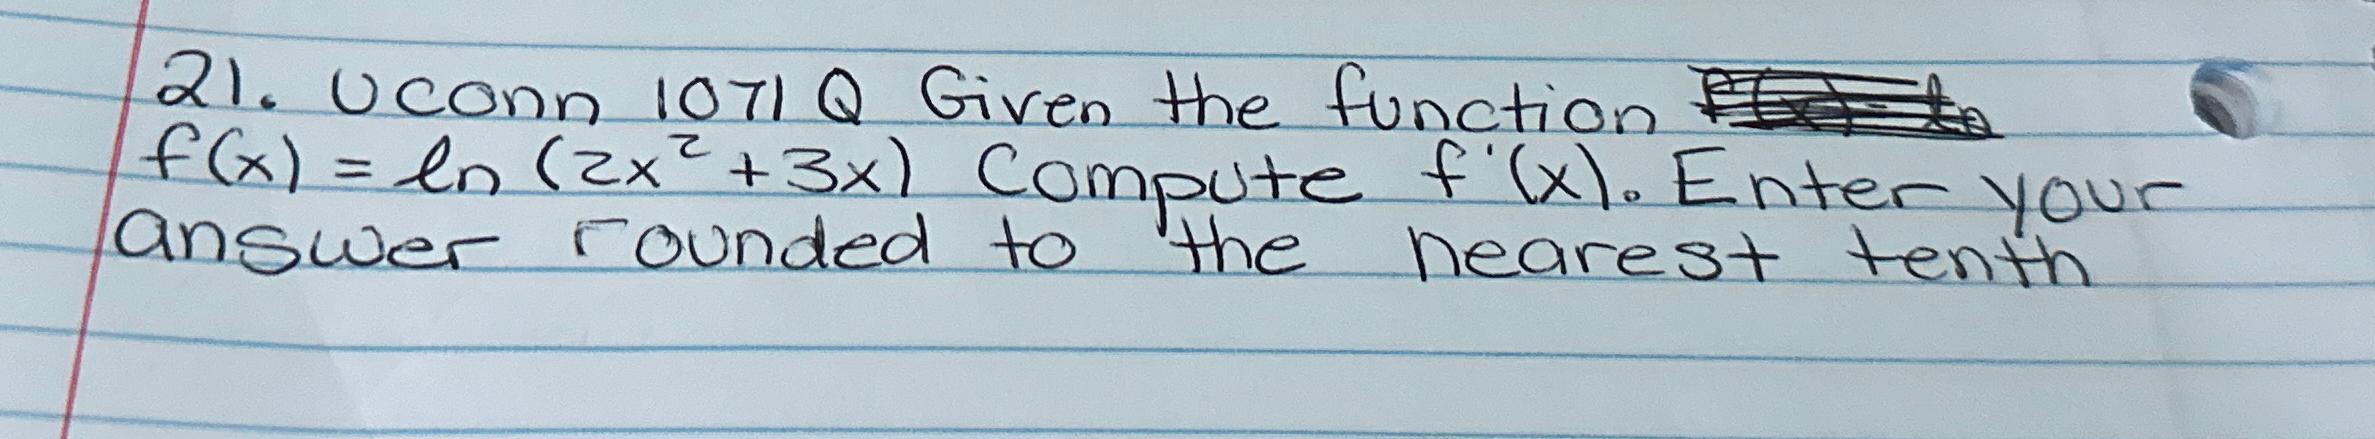 21. UConn 1071 Q Given the function
f(x) = ln (2x² + 3x) Compute f'(x). Enter your
answer rounded to the nearest tenth